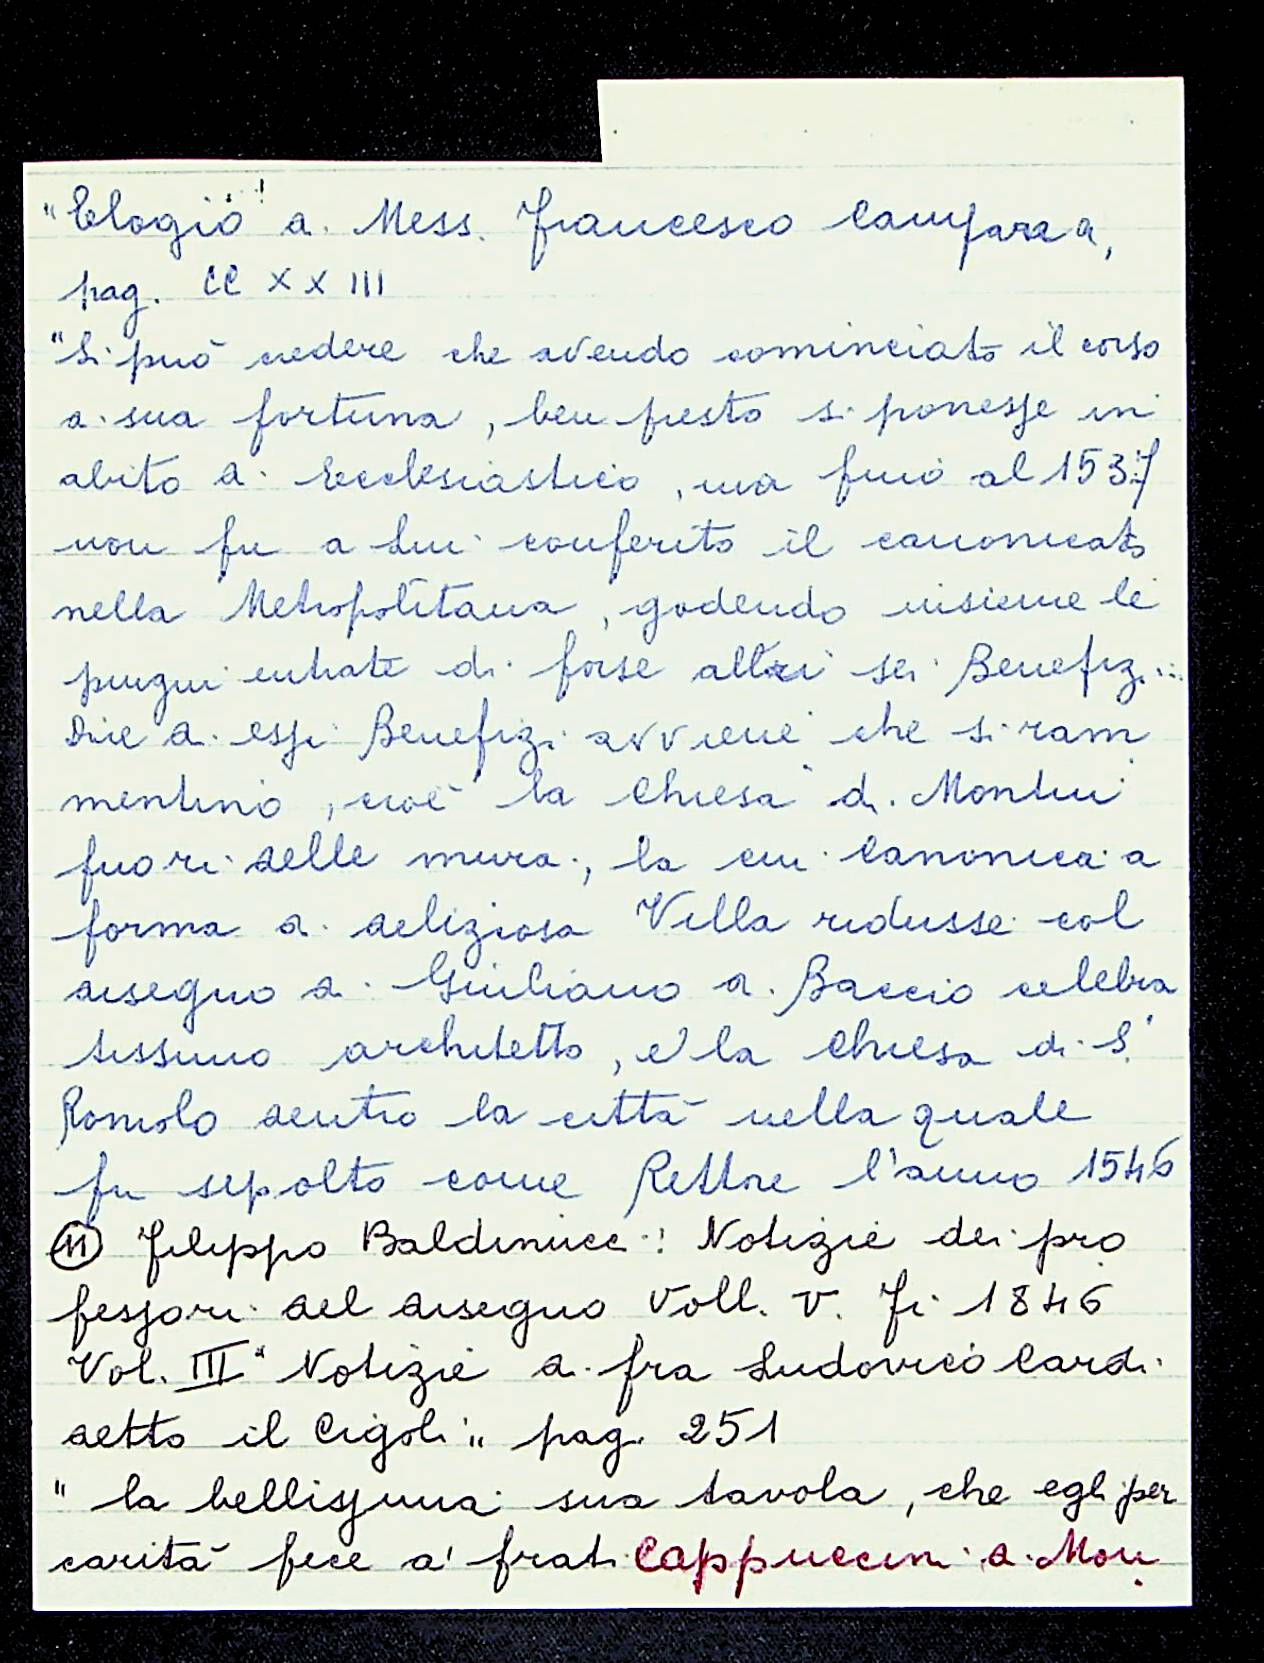 "Elogio" di Mess. Francesco Campana,
pag. CCXXIII
"Si può credere che avendo cominciato il corso
di sua fortuna, ben presto si ponesse in
abito di Ecclesiastico, ma fino al 1537
non fu a Lui conferito il canonicato
nella Metropolitana, godendo insieme le
pingui entrate di forse altri sei Benefizi...
Due di essi Benefizi avviene che si ram
mentino, cioè la Chiesa di Montui
fuori delle mura, la cui Canonica a
forma di deliziosa Villa ridusse col
disegno di Giuliano di Baccio celebra
tissimo architetto, e la Chiesa di S.
Romolo dentro la città nella quale
fu sepolto come Rettore l'anno 1546
(11) Filippo Baldinucci: Notizie dei pro
fessori del disegno Voll. V. Fi 1846
Vol. III "Notizie di fra Ludovico Cardi
detto il Cigoli" pag. 251
" la bellissima sua tavola, che egli per
carità fece a' frati Cappuccini di Mon